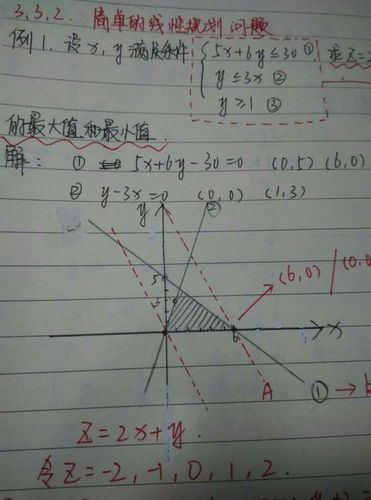 3.3.2. 简单的线性规划问题
例1. 设x,y满足条件 { 5x+6y≤30 ① 求Z=2
y≤3x ②
y≥1 ③
的最大值和最小值.
解: ① 5x+6y-30=0 (0,5) (6,0)
② y-3x=0 (0,0) (1,3)
y ②
5
3
(6,0) / (0,0
6 x
A ① →
Z=2x+y.
令Z=-2,-1,0,1,2.